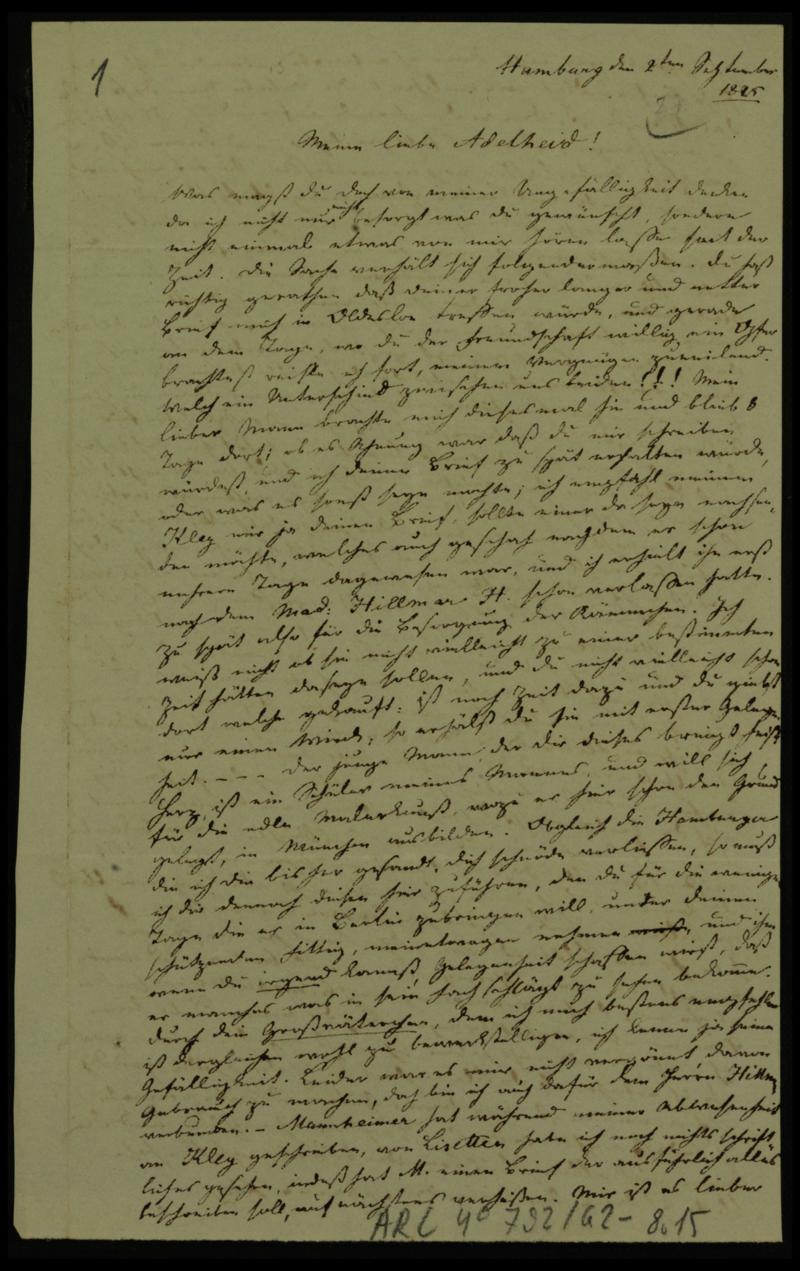 1
Hamburg den 2ten September
1825
Meine liebe Adelheid!
Was magst du doch von meiner Ungefälligkeit denken
da ich nicht nur nicht besorgt was du gewünscht, sondern
nicht einmal etwas von mir hören lasse seit der
Zeit. Die Sache verhält sich folgendermaßen. Du hast
richtig gerathen daß deiner froher langer und netter
Brief mich in Oldesloe treffen würde, und gerade
an dem Tage, wo du der Freundschaft willig ein Opfer
brachtest reiste ich fort, meinem Vergnügen zueilend.
Welch ein Unterschied zwischen uns beiden!!! Mein
lieber Mann brachte mich diesesmal hin und blieb 8
Tage dort; ob es Ahnung war daß du mir schreiben
würdest, und ich deinen Brief zu spät erhalten würde,
oder was es sonst seyn mochte; ich empfahl meinem
Kley mir ja deinen Brief, sollte einer da seyn nachsen-
den möchte, welches auch geschah nachdem er schon
mehrere Tage dagewesen war, und ich erhielt ihn erst
nach dem Mad: Hillmar H. schon verlassen hatte.
Zu spät also für die Besorgung der. Ich
weiß nicht ob sie nicht vielleicht zu einer bestimmten
Zeit hätten daseyn sollen, und du nicht vielleicht schon
dort welche gekauft: ist noch Zeit dazu und du giebst
nur einen Wink, so erhälst du sie mit erster Gelegen-
heit. - - - Der junge Mann, der dir dieses bringt heißt
Herz, ist ein Schüler meines Mannes, und will sich
für die edle Malerkunst, wozu er hier schon den Grund
gelegt, in München ausbilden. Obgleich die Hamburger
die ich dir bisher gesandt, dich schnöde verließen, so muß
ich dir dennoch diesen hier zuführen, den du für die wenige
Tage die er in Berlin zubringen will, unter deinen
schützenden Fittig, meinetwegen nehmen, und ihm
wenn du irgend kannst Gelegenheit schaffen wirst, daß
er manches was in sein Fach schlägt zu sehen bekomme.
Durch dein Großväterchen, dem ich mich bestens empfehle
ist dergleichen wohl zu bewerkstelligen, ich kenne ja seine
Gefälligkeit. Leider war es mir nicht vergönnt davon
Gebrauch zu machen, doch bin ich auch dafür dem Herrn Hillmar
verbunden. - Mannheimer hat während meiner Abwesenheit
an Kley geschrieben, von Lisetten habe ich noch nichts schrift-
liches gesehen, indeß hat M. einen Brief der ausführlich alles
beschreiben soll, auf nächstens verheißen. Mir ist es lieber
ARC 4° 792/G2-8.15